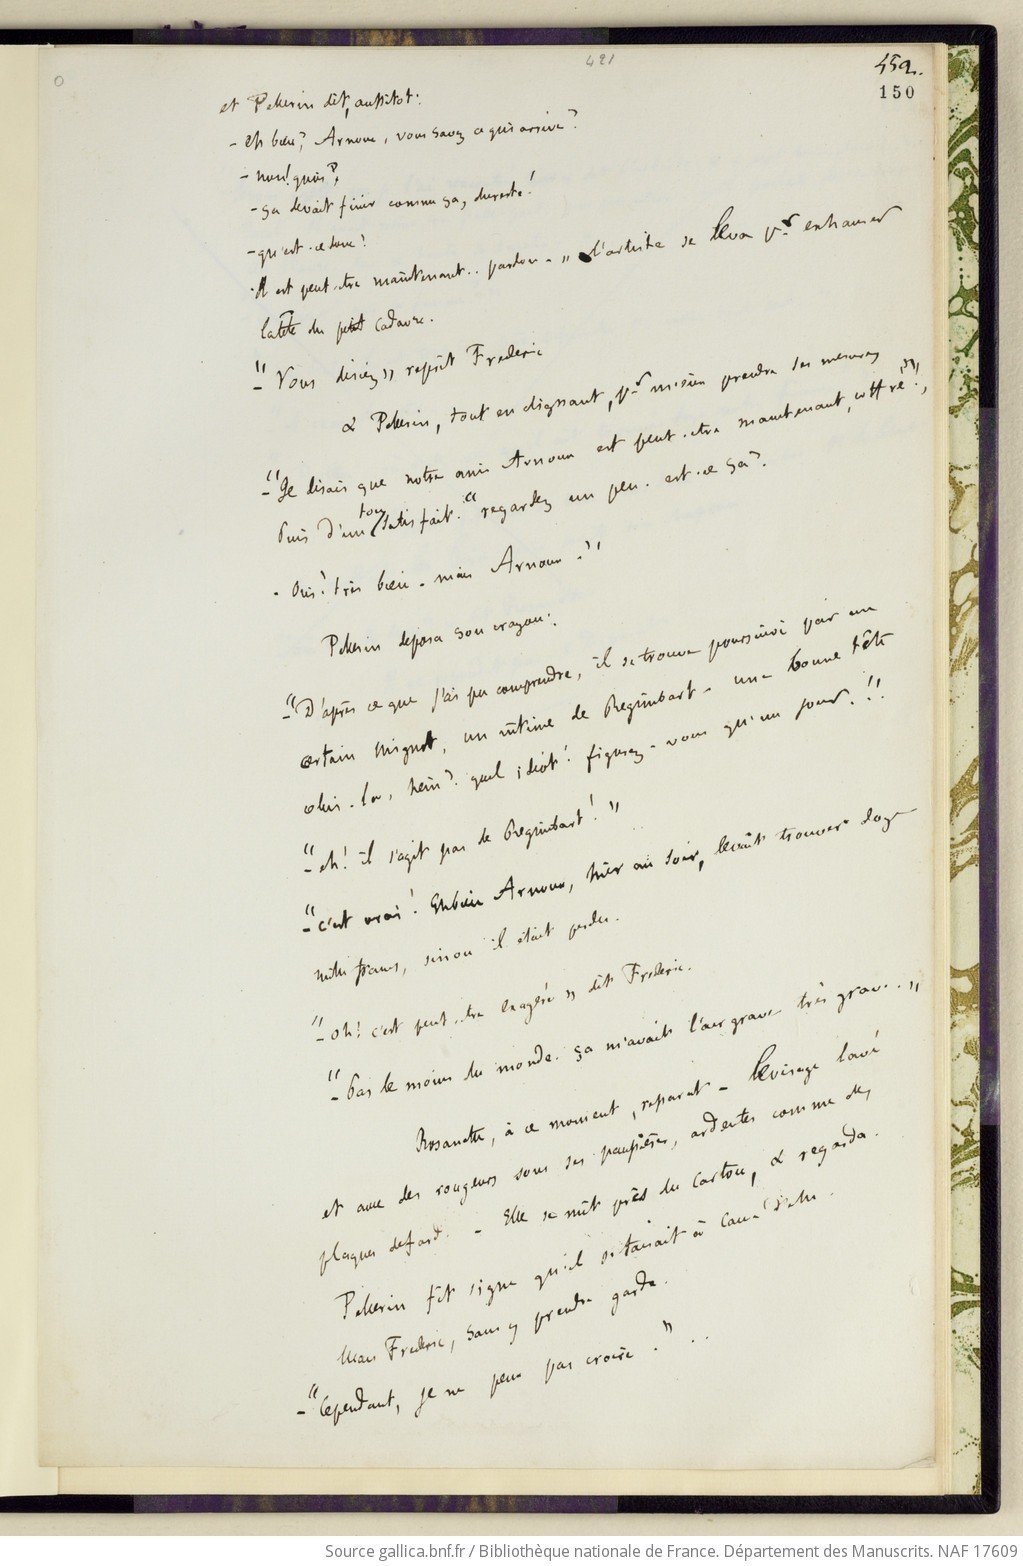 421
452.
150
et Pellerin dit, aussitot:
– Eh bien, Arnoux, vous savez ce qui arrive?
– non! quoi?
– ça devait finir comme ça, du reste!
– qu'est-ce donc?
Il est peut-etre maintenant.. pardon – » l'artiste se leva pr exhausser
la tête du petit cadavre.
– " Vous disiez » reprit Frederic
& Pellerin, tout en clignant, pr mieux prendre ses mesures
– " Je disais que notre ami Arnoux est peut-etre maintenant, coffré! »,
Puis d'un ton satisfait. " regardez un peu. est-ce ça?.
– Oui! très bien – mais Arnoux – ? "
Pellerin deposa son crayon:
– " D'après ce que j'ai pu comprendre, il se trouve poursuivi par un
certain Mignot, un intime de Regimbart – une bonne tête
celui-là, hein? quel idiot! figurez-vous qu'un jour. !!
– " eh! il s'agit pas de Regimbart! »
– " c'est vrai! Eh bien Arnoux, hier au soir, devait trouver douze
mille francs, sinon il était perdu.
– " oh! c'est peut-etre exagéré » dit Frederic.
– " Pas le moins du monde. ça m'avait l'air grave très grave. »
Rosanette, à ce moment, reparut – le visage lavé
et avec des rougeurs sous ses paupières, ardentes comme des
plaques de fard. – Elle se mit près du carton, & regarda.
Pellerin fit signe qu'il se taisait à cause d'elle.
Mais Frederic, sans y prendre garde.
– " Cependant, je ne peux pas croire. » ..
Source gallica.bnf.fr / Bibliothèque nationale de France. Département des Manuscrits. NAF 17609